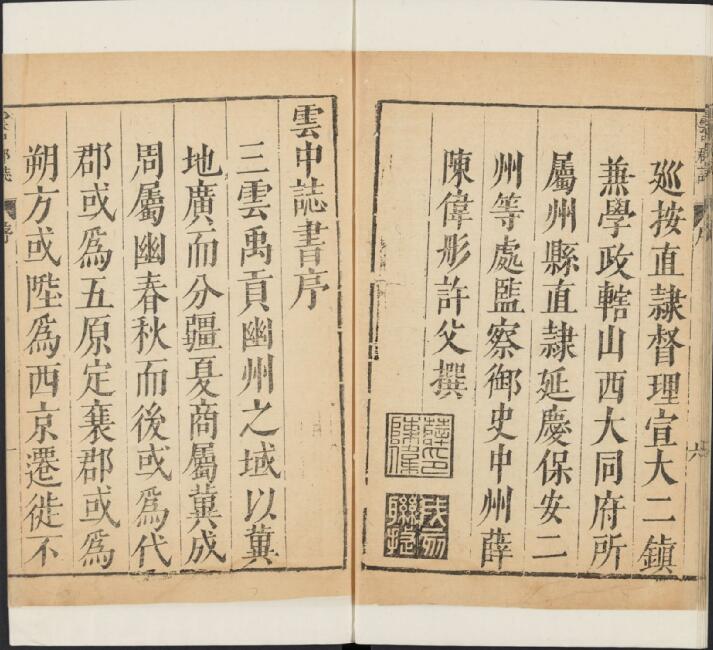 巡按直隷督理宣大二鎮
兼學政轄山西大同府所
屬州縣直隷延慶保安二
州等處監察御史中州薛
陳偉彤許父撰
雲中誌書序
三雲禹貢幽州之域以冀
地廣而分疆夏商屬冀成
周屬幽春秋而後或爲代
郡或爲五原定襄郡或爲
朔方或陞爲西京遷徙不